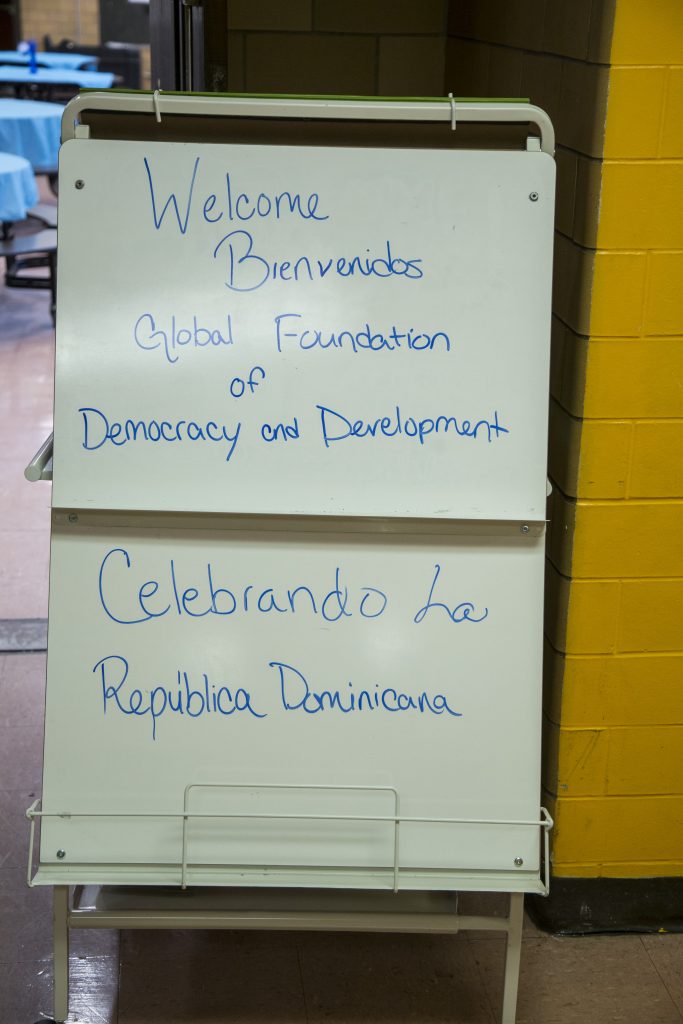 Welcome
Bienvenidos
Global Foundation
of
Democracy and Development
Celebrando La
República Dominicana